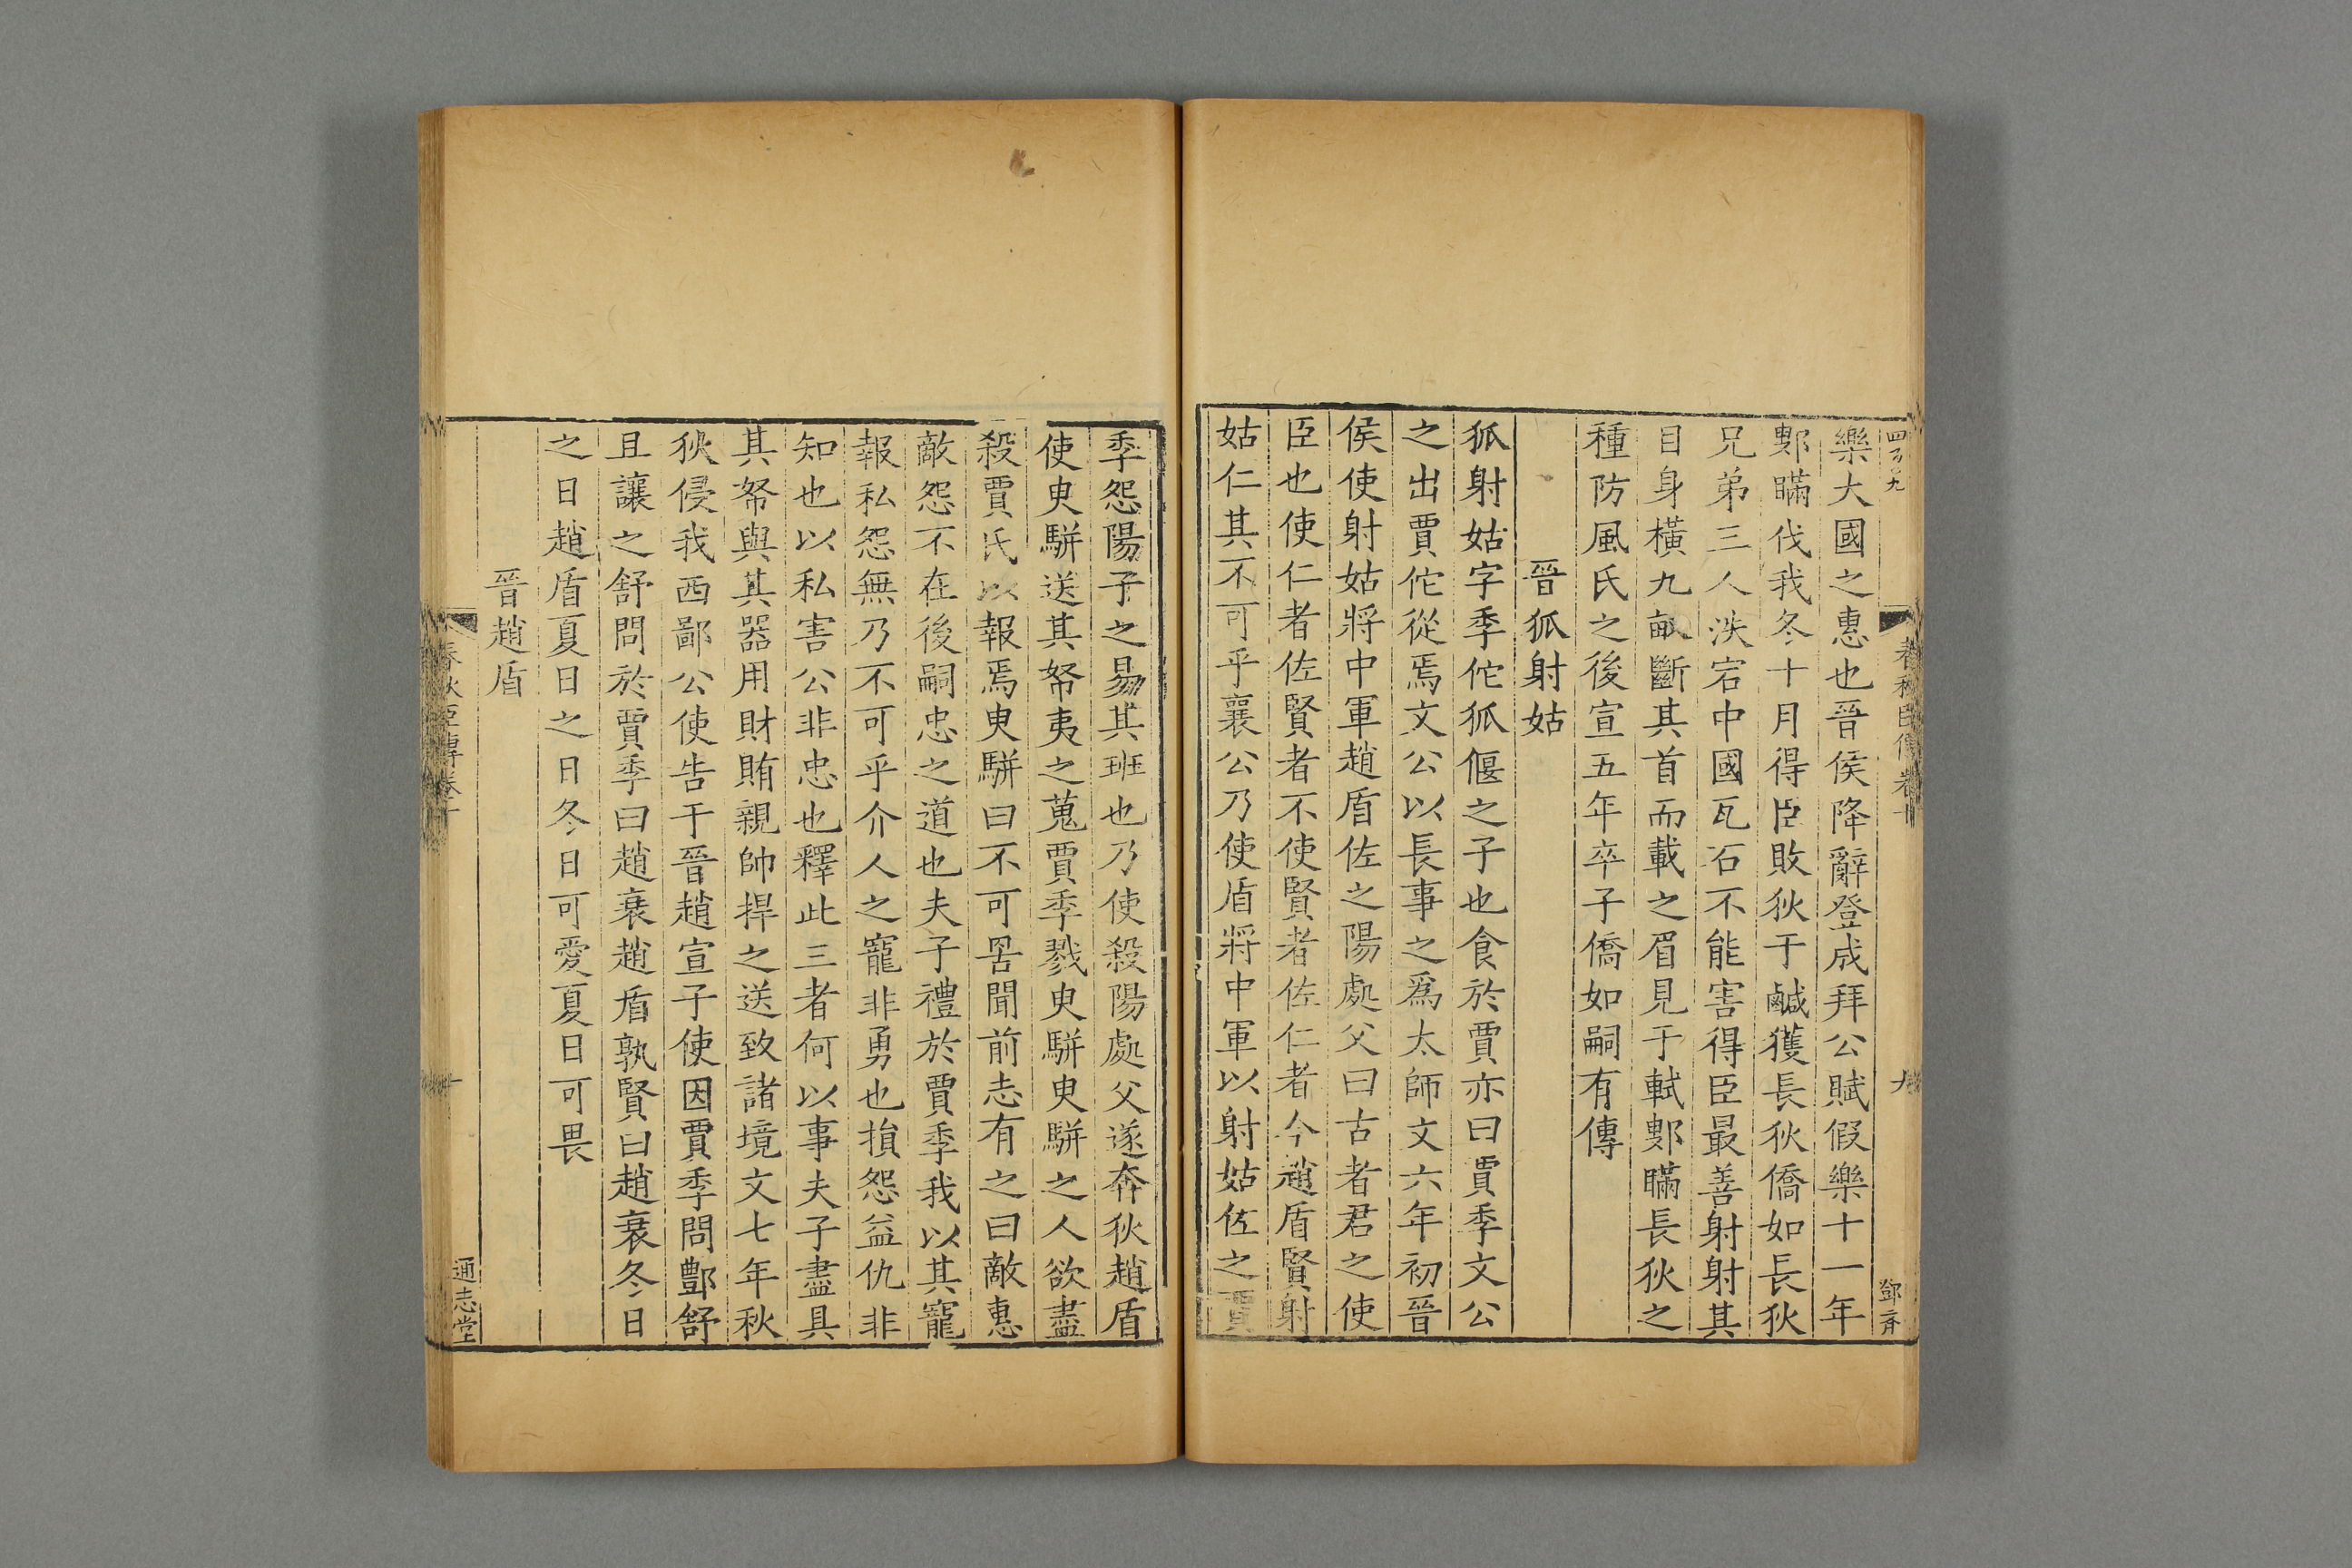 四百九
春秋臣傳卷十
九
鄧斉
樂大國之惠也晉侯降辭登成拜公賦假樂十一年
鄋瞞伐我冬十月得臣敗狄于鹹獲長狄僑如長狄
兄弟三人泆宕中國瓦石不能害得臣最善射射其
目身橫九畝斷其首而載之眉見于軾鄋瞞長狄之
種防風氏之後宣五年卒子僑如嗣有傳
晉狐射姑
狐射姑字季佗狐偃之子也食於賈亦曰賈季文公
之出賈佗從焉文公以長事之爲太師文六年初晉
侯使射姑將中軍趙盾佐之陽處父曰古者君之使
臣也使仁者佐賢者不使賢者佐仁者今趙盾賢射
姑仁其不可乎襄公乃使盾將中軍以射姑佐之賈
季怨陽子之易其班也乃使殺陽處父遂奔狄趙盾
使臾駢送其帑夷之蒐賈季戮臾駢臾駢之人欲盡
殺賈氏以報焉臾駢曰不可吾聞前志有之曰敵惠
敵怨不在後嗣忠之道也夫子禮於賈季我以其寵
報私怨無乃不可乎介人之寵非勇也損怨益仇非
知也以私害公非忠也釋此三者何以事夫子盡具
其帑與其器用財賄親帥捍之送致諸境文七年秋
狄侵我西鄙公使告于晉趙宣子使因賈季問酆舒
且讓之舒問於賈季曰趙衰趙盾孰賢曰趙衰冬日
之日趙盾夏日之日冬日可愛夏日可畏
晉趙盾
春秋臣傳卷十
通志堂